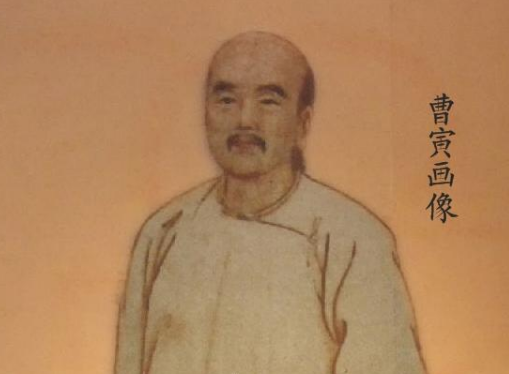 曹寅画像